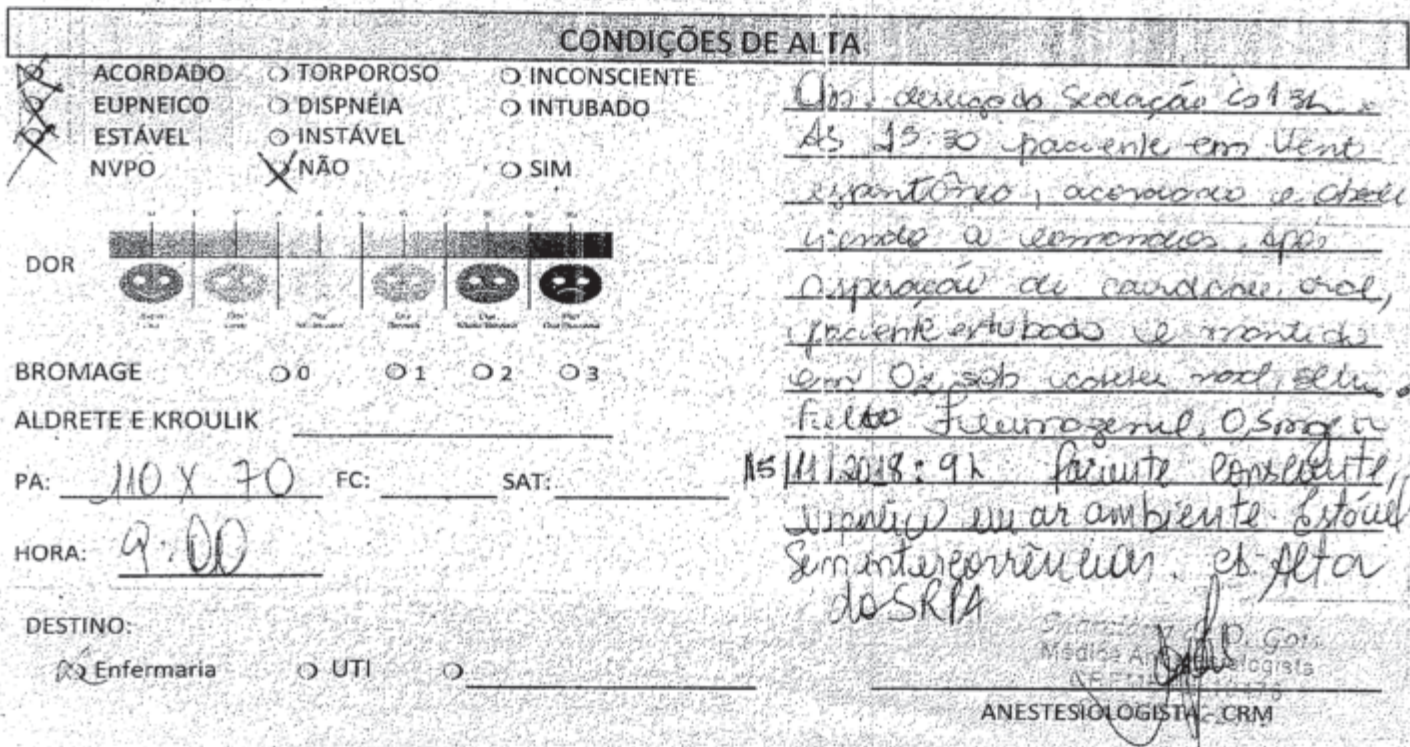 CONDIÇÕES DE ALTA
ACORDADO TORPOROSO INCONSCIENTE
EUPNEICO DISPNÉIA INTUBADO
ESTÁVEL INSTÁVEL
NVPO NÃO SIM
DOR
BROMAGE 0 1 2 3
ALDRETE E KROULIK
PA: 110 X 70 FC: SAT:
HORA: 9:00
DESTINO:
Enfermaria UTI
sedação às 13h
Às 15:30 paciente em Vent
espontânea, acordado e obede
cendo a comandos, após
aspiração de cavidade oral,
paciente extubado e mantido
em O2 sob cateter nasal,
Feito Flumazenil, 0,5mg
15/11/2018: 9h Paciente consciente,
em ar ambiente. Estável
Sem intercorrências. Alta
da SRPA
Médico
ANESTESIOLOGISTA - CRM